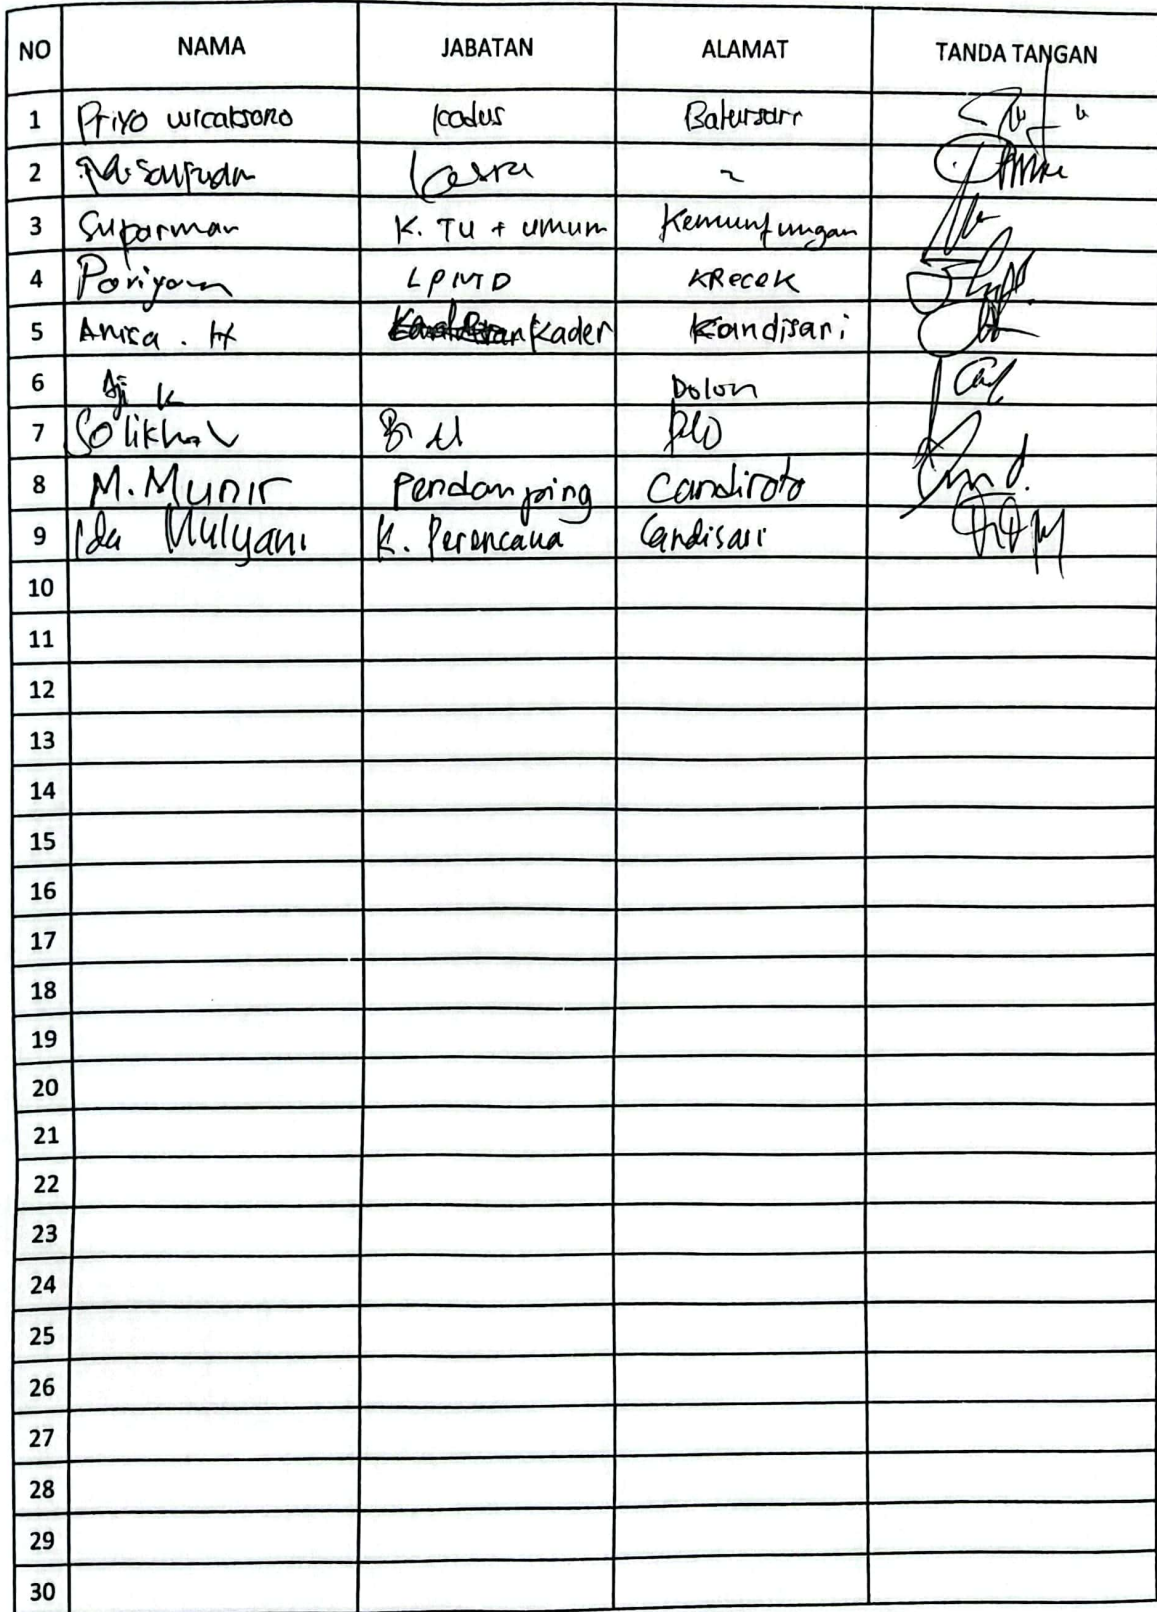 NO NAMA JABATAN ALAMAT TANDA TANGAN
1 Priyo wicaksono kadus Batursari
2 kesra
3 Suparman K. TU + umum Kemunfungan
4 Pariyan LPMD KRecek
5 Anisa . H Kader Kandisari
6 Aji K Dolon
7 Solikhal
8 M. Munir Pendamping Candiroto
9 Ida Mulyani K. Perencana Candisari
10
11
12
13
14
15
16
17
18
19
20
21
22
23
24
25
26
27
28
29
30